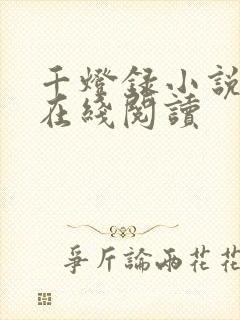 千燈録小說
在綫閱讀
爭斤論兩花花